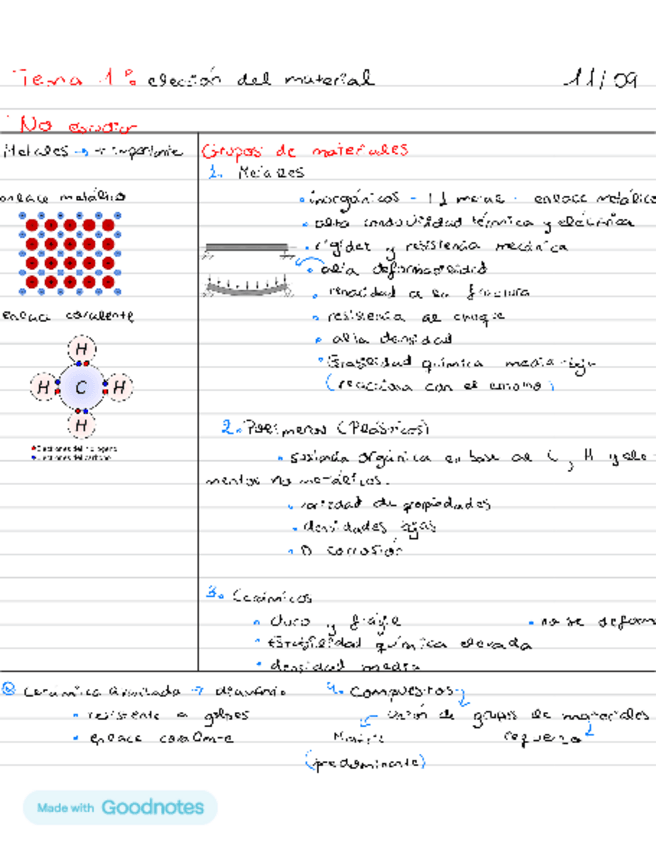 Tema 1: elección del material
11/09
No estudiar
Metales → + importante
Grupos de materiales
1. Metales
enlace metálico
• inorgánicos - enlace metálico
• alta conductividad térmica y eléctrica
• rigidez y resistencia mecánica
• alta deformabilidad
• tenacidad a la fractura
enlace covalente
• resistencia al choque
• alta densidad
• Estabilidad química media-baja
(reacciona con el entorno)
H
H C H
H
Electrones del hidrógeno
Electrones del carbono
2. Polímeros (Plásticos)
• sustancia orgánica en base de C, H y ele-
mentos no metálicos.
• variedad de propiedades
• densidades bajas
• corrosión
3. Cerámicos
• duro y frágil
• no se deforma
• Estabilidad química elevada
• densidad media
Cerámica →
• resistente a golpes
• enlace covalente
4. Compuestos
unión de grupos de materiales
Matriz
refuerzo
(predominante)
Made with Goodnotes